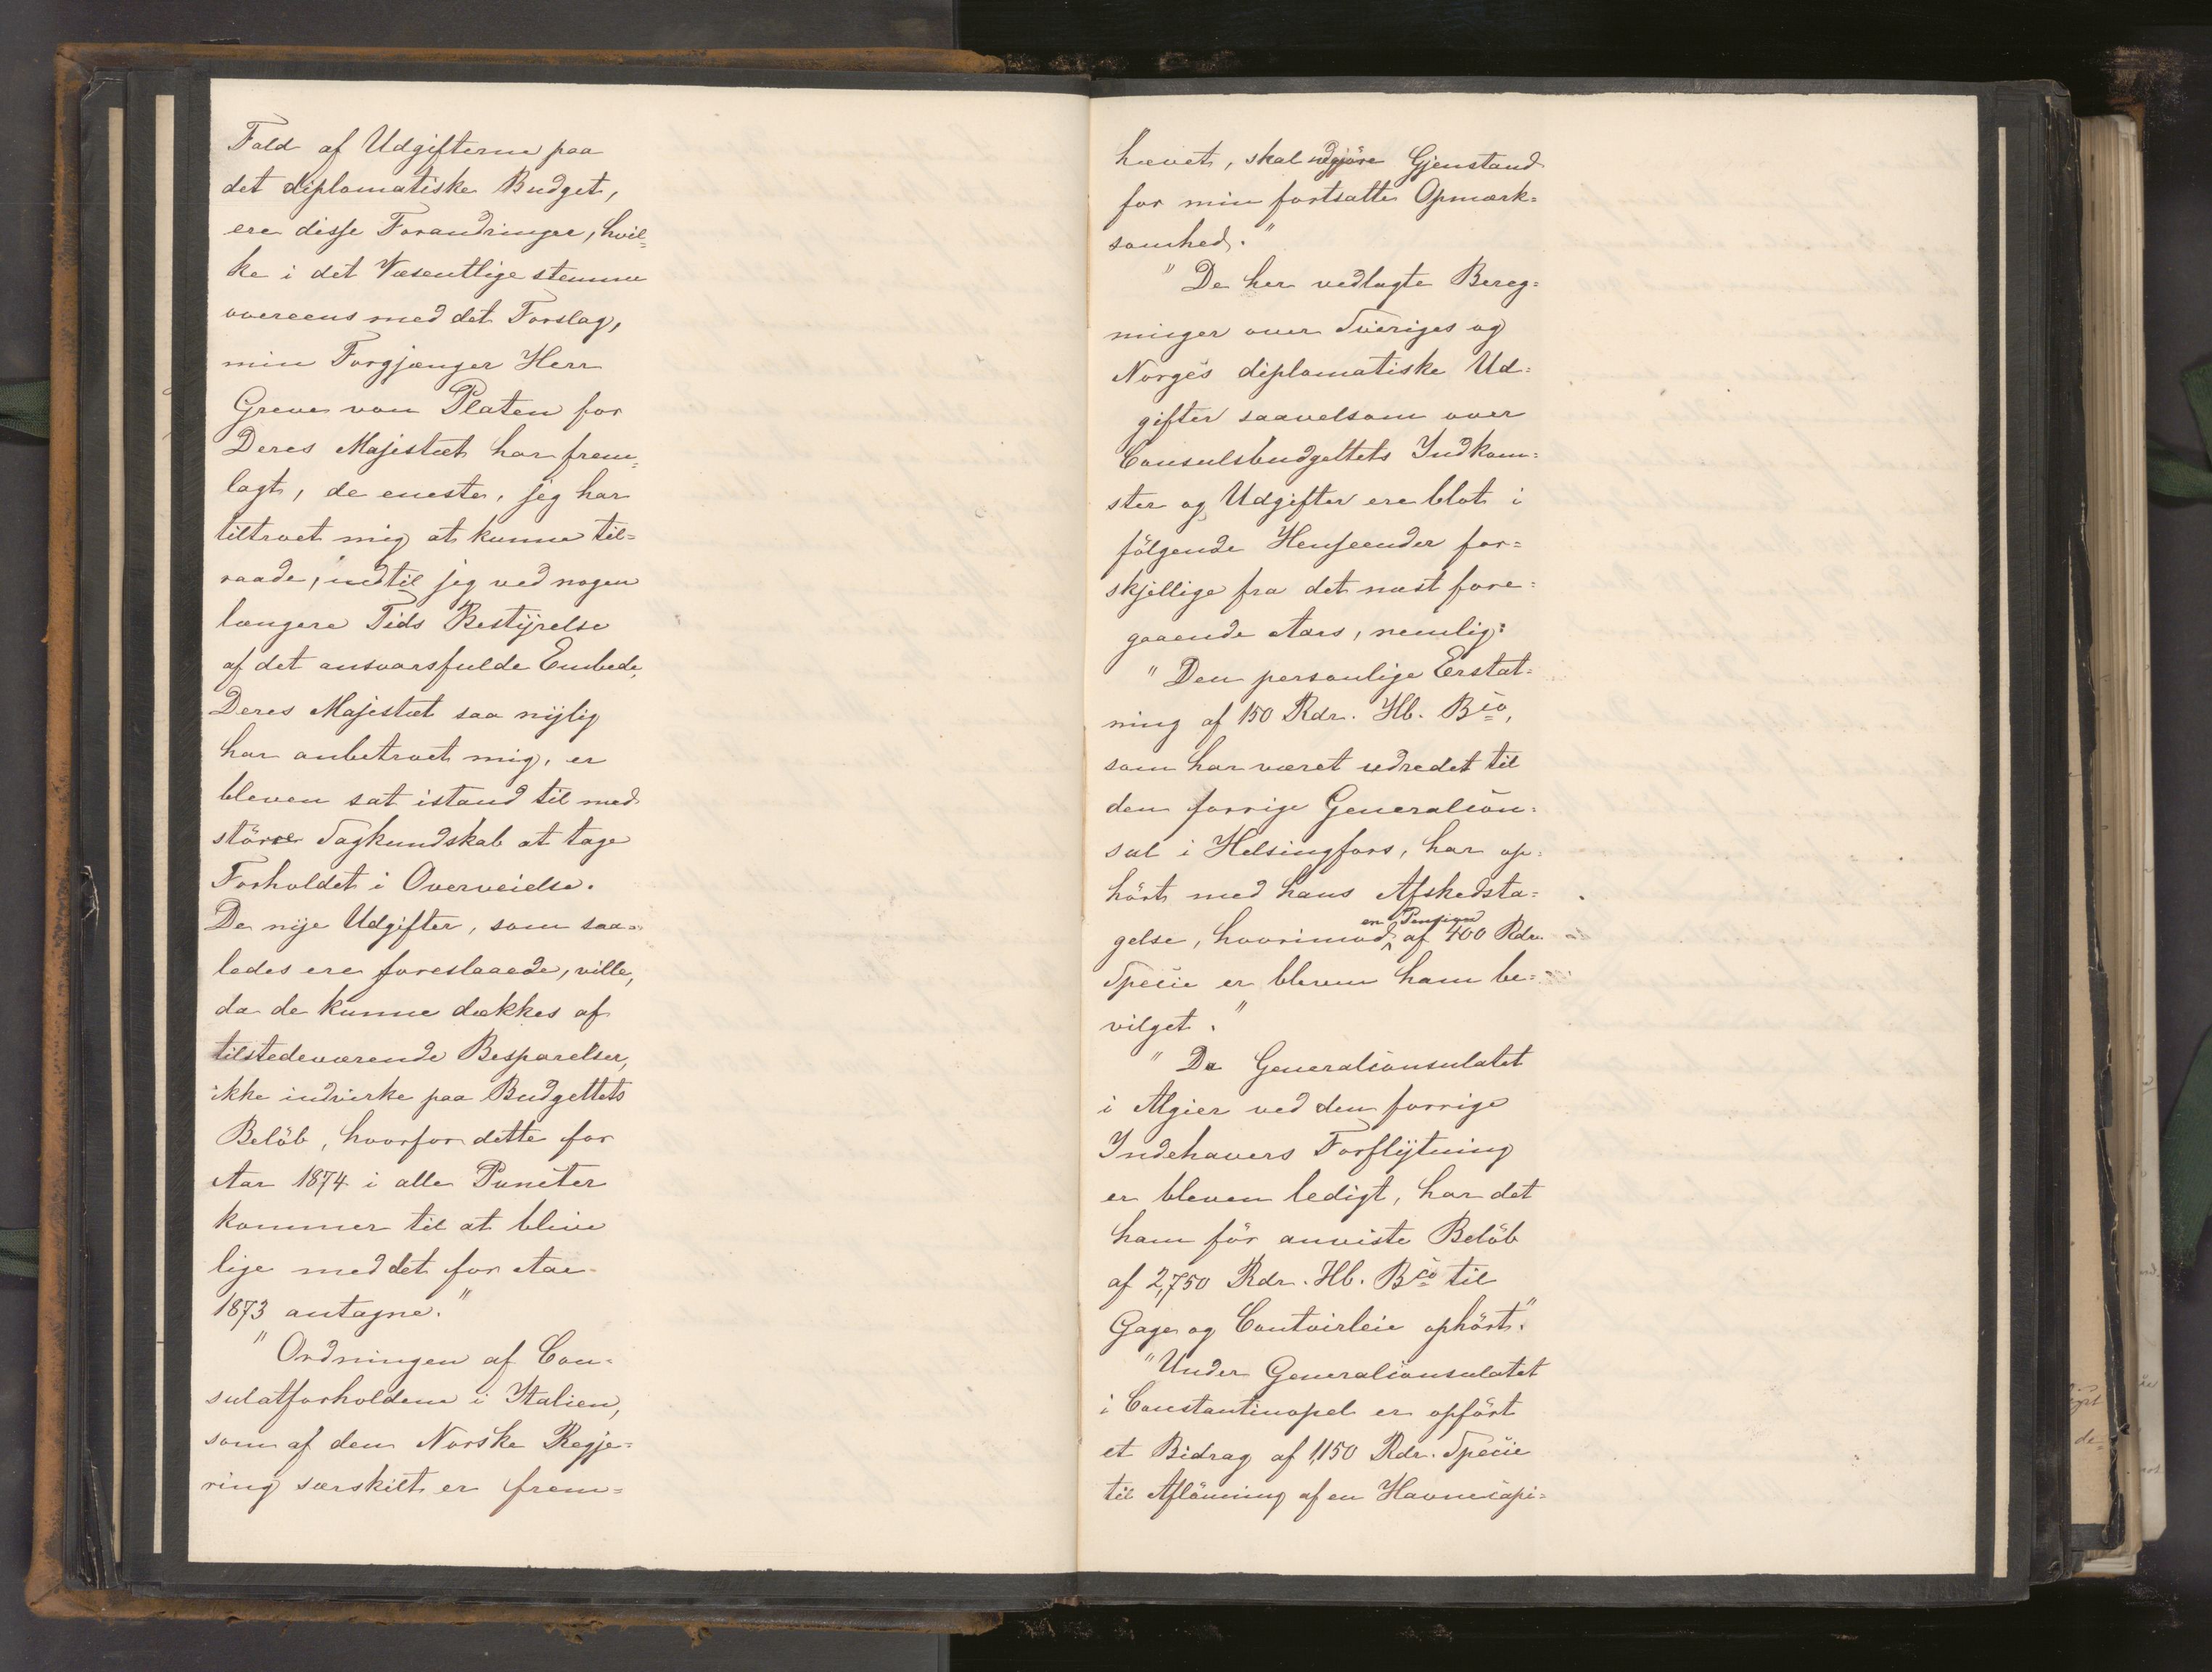 Fald af Udgifterne paa
det diplomatiske Budget,
ere disse Forandringer, hvil=
ke i det Væsentlige stemme
overeens med det Forslag,
min Forgjænger Herr
Greve von Platen for
Deres Majestæt har frem=
lagt, de eneste, jeg har
tiltroet mig at kunne til=
raade, indtil jeg ved nogen
længere Tids Bestÿrelse
af det ansvarsfulde Embede,
Deres Majestæt saa nÿlig
har anbetroet mig, er
bleven sat istand til med
större Sagkundskab at tage
Forholdet i Overveielse.
De nÿe Udgifter, som saa=
ledes ere foreslaaede, ville,
da de kunne dækkes af
tilstedeværende Besparelser,
ikke indvirke paa Budgettets
Belöb, hvorfor dette for
Aar 1874 i alle Puncter
kommer til at blive
lige med det for Aar
1873 antagne."
"Ordningen af Con=
sulatforholdene i Italien,
som af den Norske Regje=
ring særskilt er frem=
hævet, skal udgjöre Gjenstand
for min fortsatte Opmærk=
somhed."
"De her vedlagte Bereg=
ninger over Sveriges og
Norges diplomatiske Ud=
gifter saavelsom over
Consulsbudgettets Indkom=
ster og Udgifter ere blot i
fölgende Henseender for=
skjellige fra det næst fore=
gaaende Aars, nemlig:
"Den personlige Erstat=
ning af 150 Rdr. Hb. Bco,
som har været udredet til
den forrige Generalcon=
sul i Helsingfors, har op=
hört med hans Afskedsta=
gelse, hvorimod en Pension af 400 Rdr.
Specie er bleven ham be=
vilget."
"Da Generalconsulatet
i Algier ved den forrige
Indehavers Forflÿtning
er bleven ledigt, har det
ham för anviste Belöb
af 2,750 Rdr. Hb. Bco til
Gage og Contoirleie ophört."
"Under Generalconsulatet
i Constantinopel er opfört
et Bidrag af 1,150 Rdr. Specie
til Aflönning af en Havnecapi=